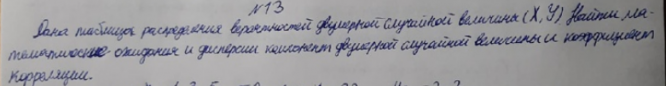 №13
Дана таблица распределения вероятностей двумерной случайной величины (X, Y) Найти ма-
тематические ожидания и дисперсии компонент двумерной случайной величины и коэффициент
корреляции.